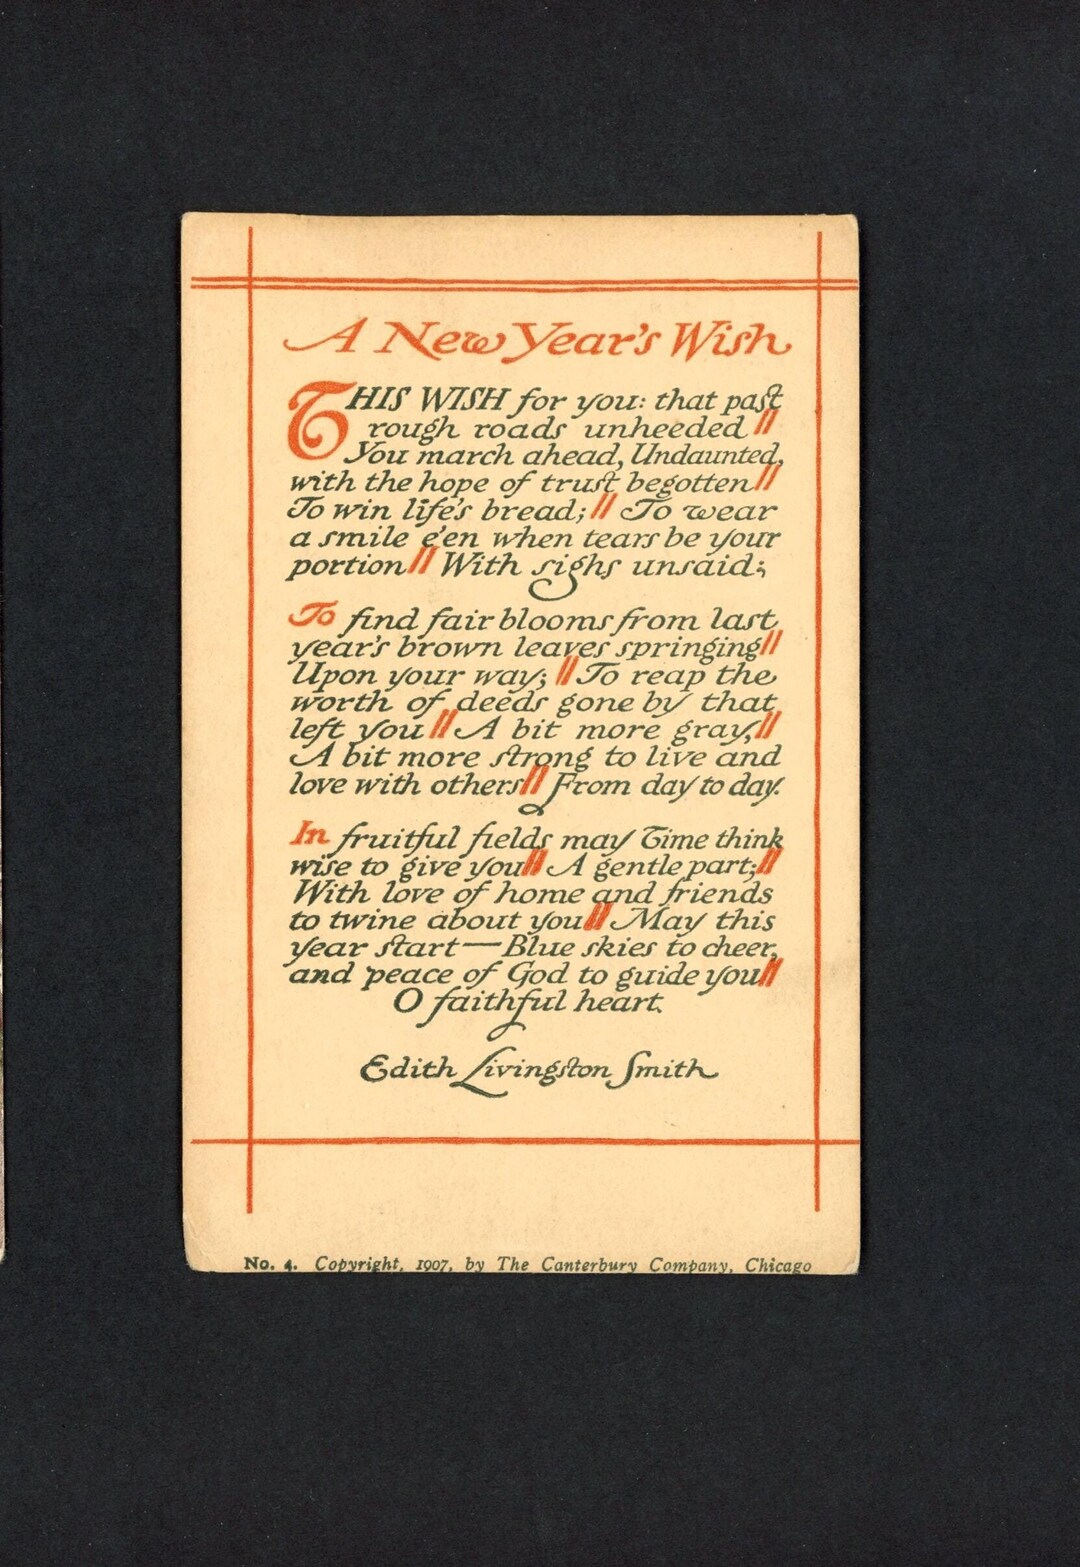 A New Year's Wish
THIS WISH for you: that past
rough roads unheeded //
You march ahead, Undaunted,
with the hope of trust begotten //
To win life's bread; // To wear
a smile e'en when tears be your
portion // With sighs unsaid;
To find fair blooms from last
year's brown leaves springing //
Upon your way; // To reap the
worth of deeds gone by that
left you // A bit more gray, //
A bit more strong to live and
love with others // From day to day.
In fruitful fields may Time think
wise to give you // A gentle part; //
With love of home and friends
to twine about you // May this
year start — Blue skies to cheer,
and peace of God to guide you //
O faithful heart.
Edith Livingston Smith
No. 4. Copyright, 1907, by The Canterbury Company, Chicago